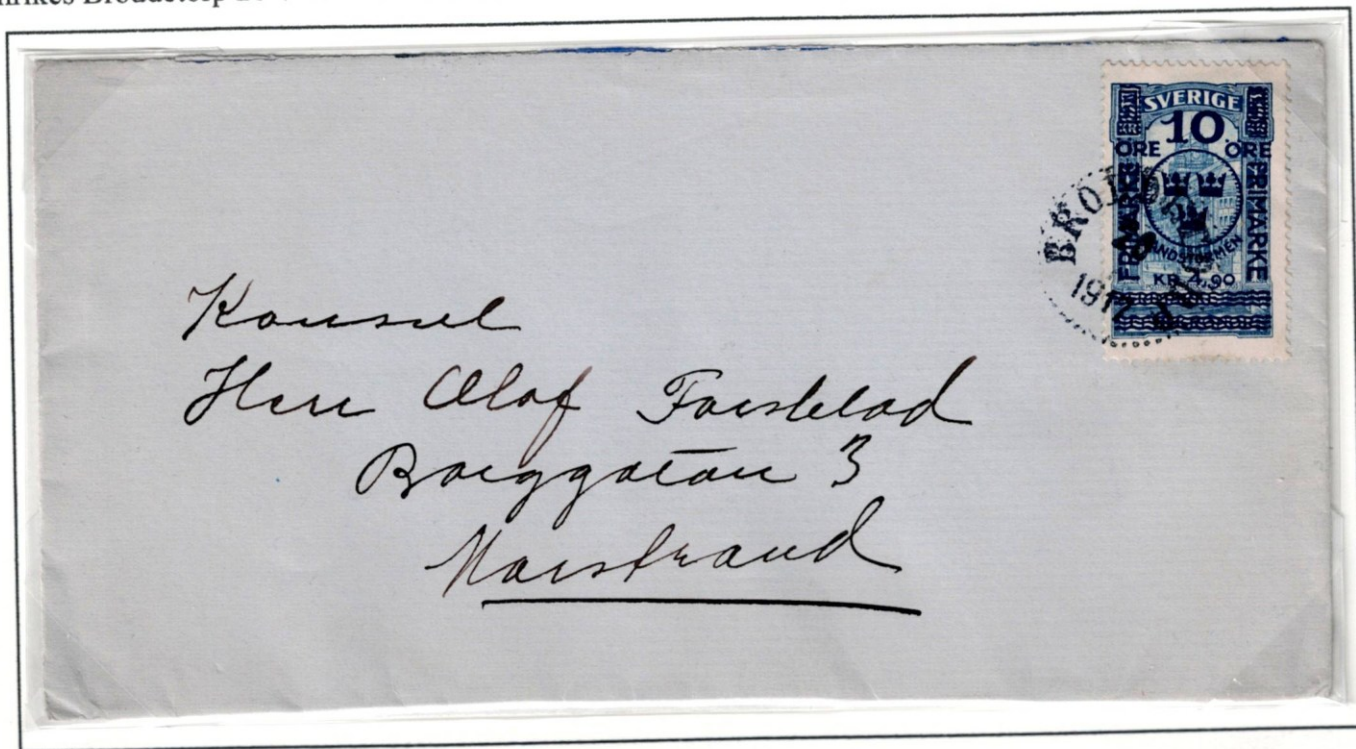 Broddetorp
SVERIGE
10
ÖRE ÖRE
FRIMÄRKE FRIMÄRKE
LANDSTORMEN
KR. 4,90
1917
Konsul
Herr Olof Forsblad
Borggatan 3
Marstrand